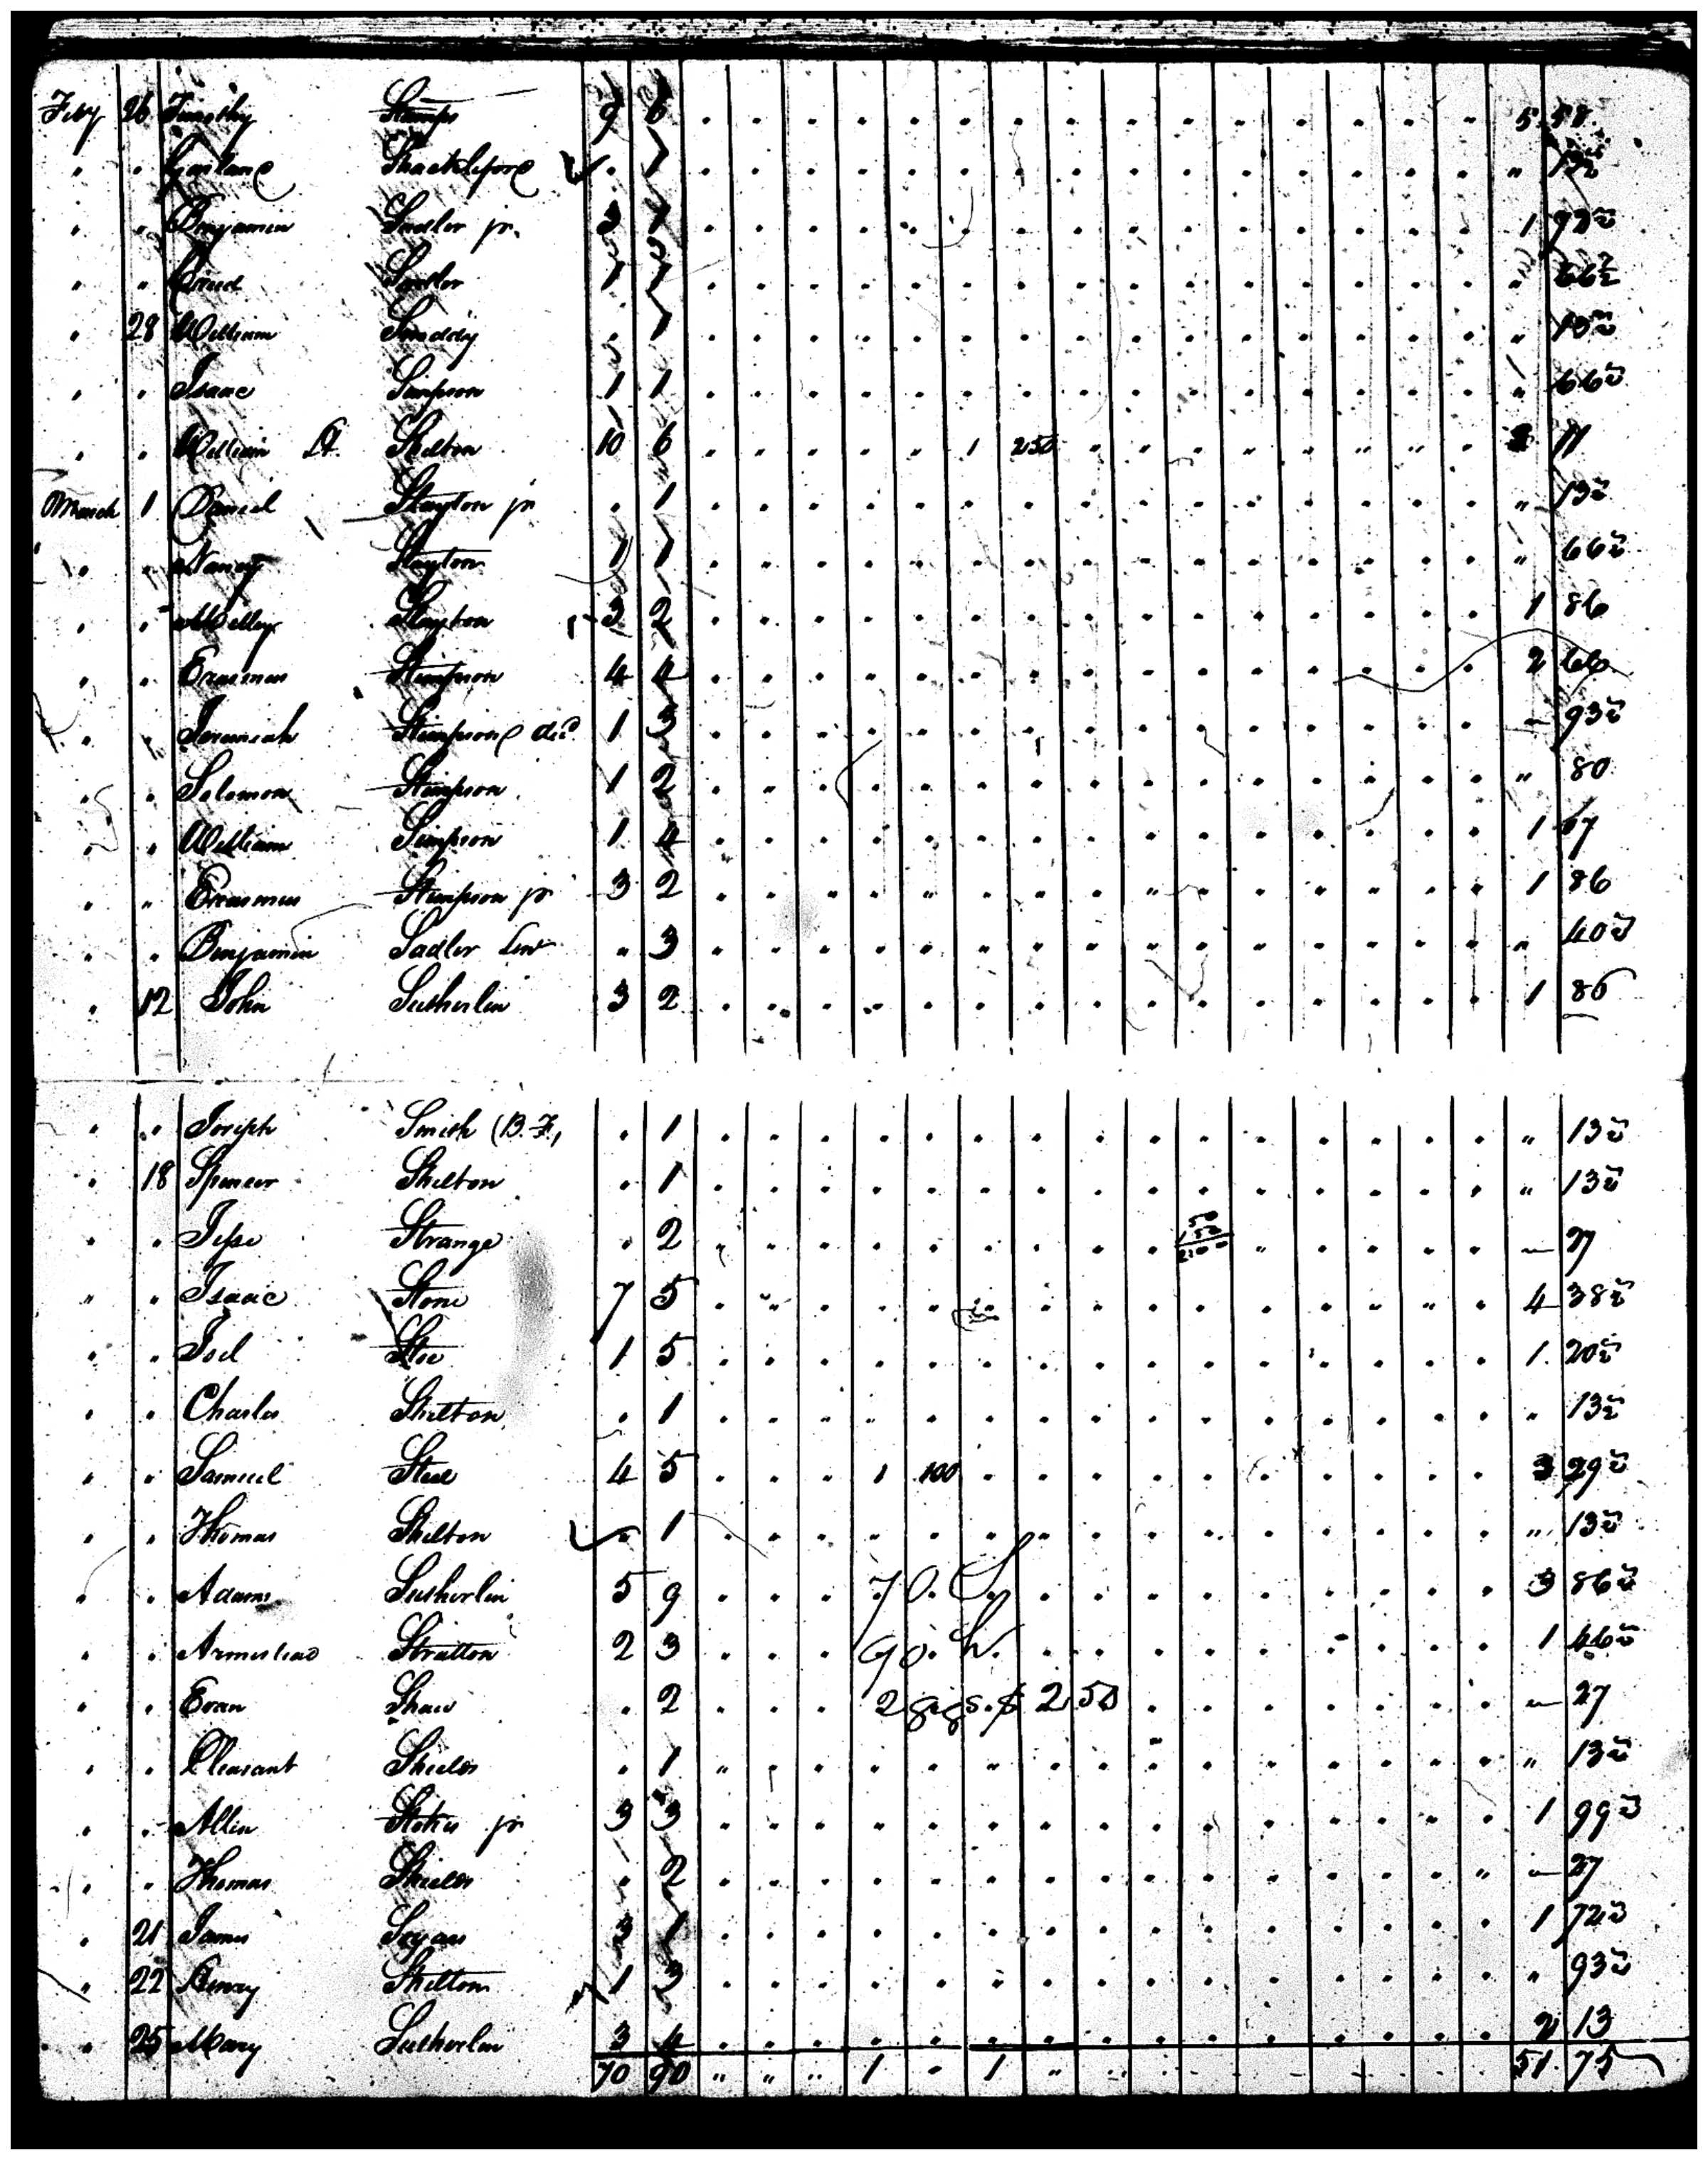 Feby 26 Timothy Stamps 9 6 . . . . . . . . . . . . . . . 5 58
" " Garland Shackleford . 1 . . . . . . . . . . . . . . . "
" " Benjamin Sadler jr. 3 1 . . . . . . . . . . . . . . . 1
" " Sadler 1 1 . . . . . . . . . . . . . . . "
" 28 William Smddy . 1 . . . . . . . . . . . . . . . "
" " Isaac Simpson 1 1 . . . . . . . . . . . . . . . " 66½
" " William Shelton 10 6 . . . . . 1 250 " " " " " " " "
March 1 Daniel Slayton jr . 1 . . . . . . . . . . . . . . . " 13½
" " Nancy Slayton 1 1 . . . . . . . . . . . . . . . " 66½
" " Slayton 3 2 . . . . . . . . . . . . . . . 1 86
" " Erasmus Stimpson 4 4 . . . . . . . . . . . . . . . 2 66
" " Jeremiah Stimpson decd 1 3 . . . . . . . . . . . . . . . " 93½
" " Solomon Stimpson 1 2 . . . . . . . . . . . . . . . " 80
" " William Simpson 1 4 . . . . . . . . . . . . . . . 1 07
" " Erasmus Stimpson jr 3 2 . . . . . . . . . . . . . . . 1 86
" " Benjamin Sadler Senr " 3 . . . . . . . . . . . . . . . " 40½
" 12 John Sutherlin 3 2 . . . . . . . . . . . . . . . 1 86
" " Joseph Smith (B.F, . 1 . . . . . . . . . . . . . . . " 13½
" 18 Spencer Shelton . 1 . . . . . . . . . . . . . . . " 13½
" " Jesse Strange . 2 . . . . . . . . . 50 150 200 . . . . . " 27
" " Isaac Stone 7 5 . . . . . . . . . . . . . . . 4 38½
" " Joel Stoe 1 5 . . . . . . . . . . . . . . . 1 20½
" " Charles Shelton . 1 . . . . . . . . . . . . . . . " 13½
" " Samuel Steel 4 5 . . . 1 100 . . . . . . . . . . 3 29½
" " Thomas Shelton . 1 . . . . . . . . . . . . . . . " 13½
" " Adams Sutherlin 5 9 . . . 70. S. . . . . . . . . . 3 86½
" " Armistead Stratton 2 3 . . . 90. h. . . . . . . . . . 1 46½
" " Evan Shaw . 2 . . . 2 gigs. $ 250 . . . . . . . " 27
" " Pleasant Shields . 1 . . . . . . . . . . . . . . . " 13½
" " Allen Stokes jr 3 3 . . . . . . . . . . . . . . . 1 99½
" " Thomas Shields . 2 . . . . . . . . . . . . . . . " 27
" 21 James Soyars 3 1 . . . . . . . . . . . . . . . 1 72½
" 22 Henry Shelton 1 3 . . . . . . . . . . . . . . . " 93½
" 25 Mary Sutherlin 3 4 . . . . . . . . . . . . . . . 2 13
70 90 " " " 1 " 1 " 51 75